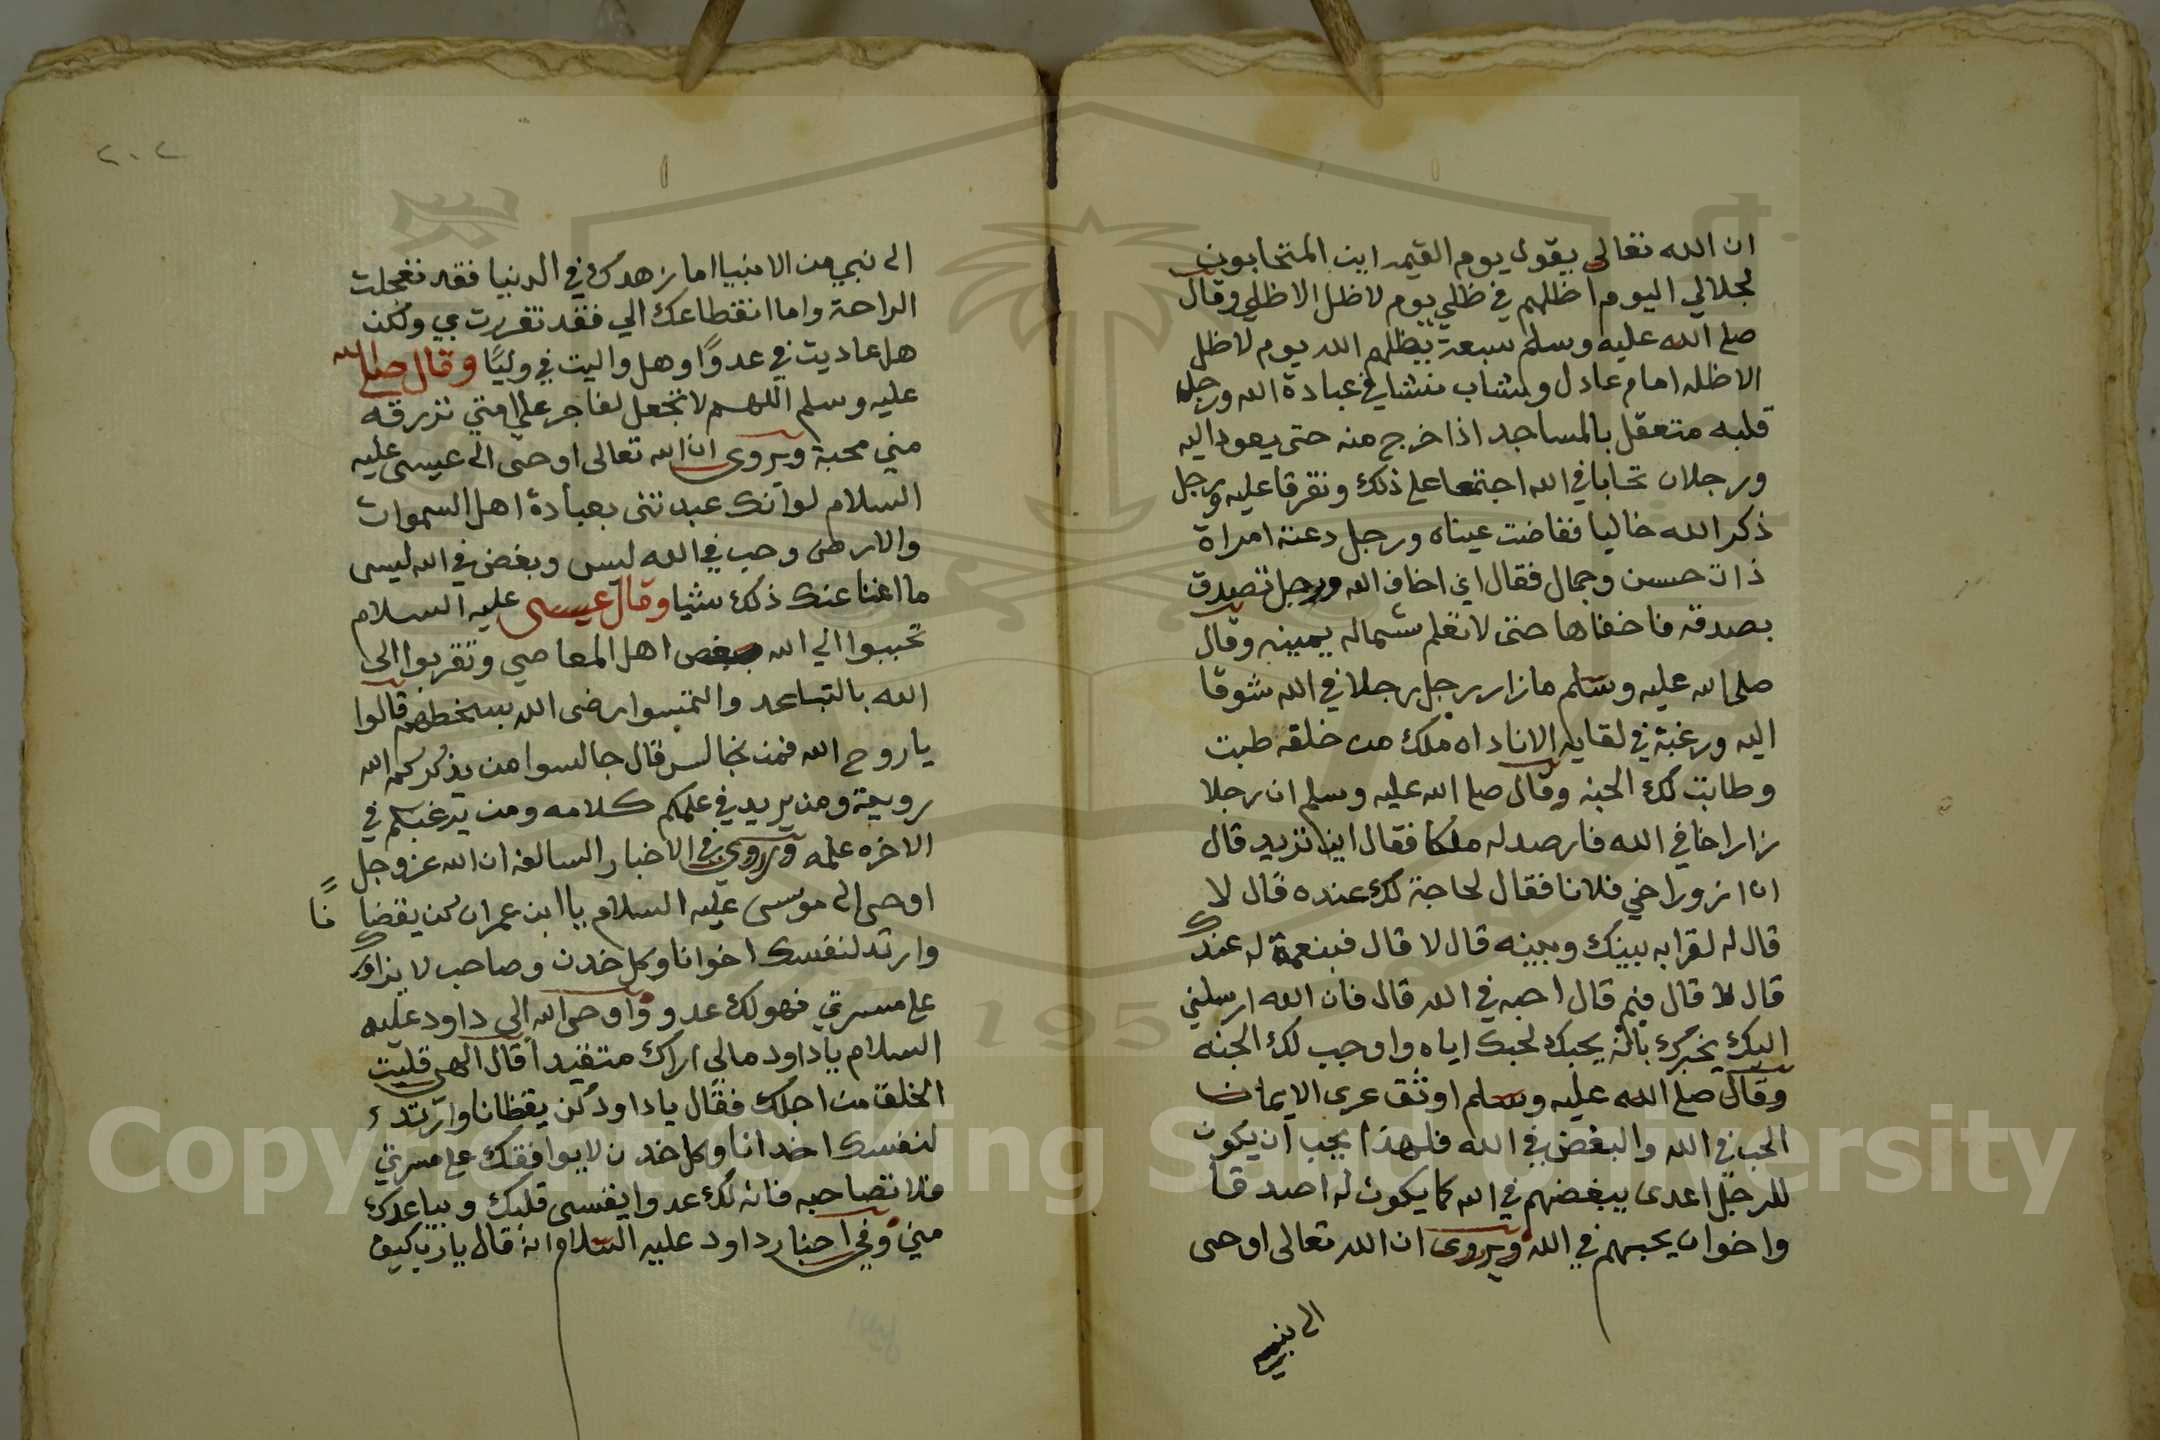 ان الله تعالى يقول يوم القيمه اين المتحابون
لجلالي اليوم اظلهم في ظلي يوم لا ظل الا ظلي وقال
صلى الله عليه وسلم سبعة يظلهم الله يوم لا ظل
الا ظله امام عادل وشاب نشا في عبادة الله ورجل
قلبه متعقل بالمساجد اذا خرج منه حتى يعود اليه
ورجلان تحابا في الله اجتمعا على ذلك وتفرقا عليه ورجل
ذكر الله خاليا ففاضت عيناه ورجل دعته امراة
ذات حسن وجمال فقال اني اخاف الله ورجل تصدق
بصدقه فاخفاها حتى لا تعلم شماله بيمينه وقال
صلى الله عليه وسلم ما زار رجل رجلا في الله شوقا
اليه ورغبة في لقايه الا ناداه ملك من خلقه طبت
وطابت لك الجنه وقال صلى الله عليه وسلم ان رجلا
زار اخا في الله فارصد له ملكا فقال اين تريد قال
ان ازور اخي فلانا فقال لحاجة لك عنده قال لا
قال له لقرابه بينك وبينه قال لا قال فبنعمة له عندك
قال لا قال فبم قال احبه في الله قال فان الله ارسلني
اليك يخبرك بانه يحبك لحبك اياه واوجب لك الجنه
وقال صلى الله عليه وسلم اوثق عرى الايمان
الحب في الله والبغض في الله فلهذا يجب ان يكون
للرجل اعدى يبغضهم في الله كما يكون له اصدقا
واخوان يحبهم في الله ويروى ان الله تعالى اوحى
الى نبي
٢٠٢
الى نبي من الانبيا اما زهدك في الدنيا فقد تعجلت
الراحة واما انقطاعك الي فقد تقررت بي ولكن
هل عاديت في عدوًا وهل واليت في وليًا وقال صلى الله
عليه وسلم اللهم لا تجعل لفاجر على امتي ترزقه
مني محبة ويروى ان الله تعالى اوحى الى عيسى عليه
السلام لو انك عبدتني بعبادة اهل السموات
والارض وحب في الله ليس وبغض في الله ليس
ما اغنا عنك ذلك شيا وقال عيسى عليه السلام
تحببوا الي الله ببغض اهل المعاصي وتقربوا الى
الله بالتباعد والتمسوا رضى الله بسخطهم قالوا
يا روح الله فمن نجالس قال جالسوا من يذكركم الله
رويته ومن يزيد في علمكم كلامه ومن يرغبكم في
الاخره علمه ويروى في الاخبار السالفة ان الله عز وجل
اوحى الى موسى عليه السلام يا ابن عمران كن يقضا نًا
وارتد لنفسك اخوانا وكل خدن وصاحب لا يوازرك
على مسرتي فهو لك عدو واوحى الله الى داود عليه
السلام يا داود مالي اراك متفيدا قال الهي قليت
الخلق من اجلك فقال يا داود كن يقظانا وارتد
لنفسك اخدانا وكل خدن لا يوافقك على مسرتي
فلا تصاحبه فانه لك عدوا يقسى قلبك ويباعدك
مني وفي اخبار داود عليه السلام انه قال يا رب كيف
Copyright © King Saud University
195